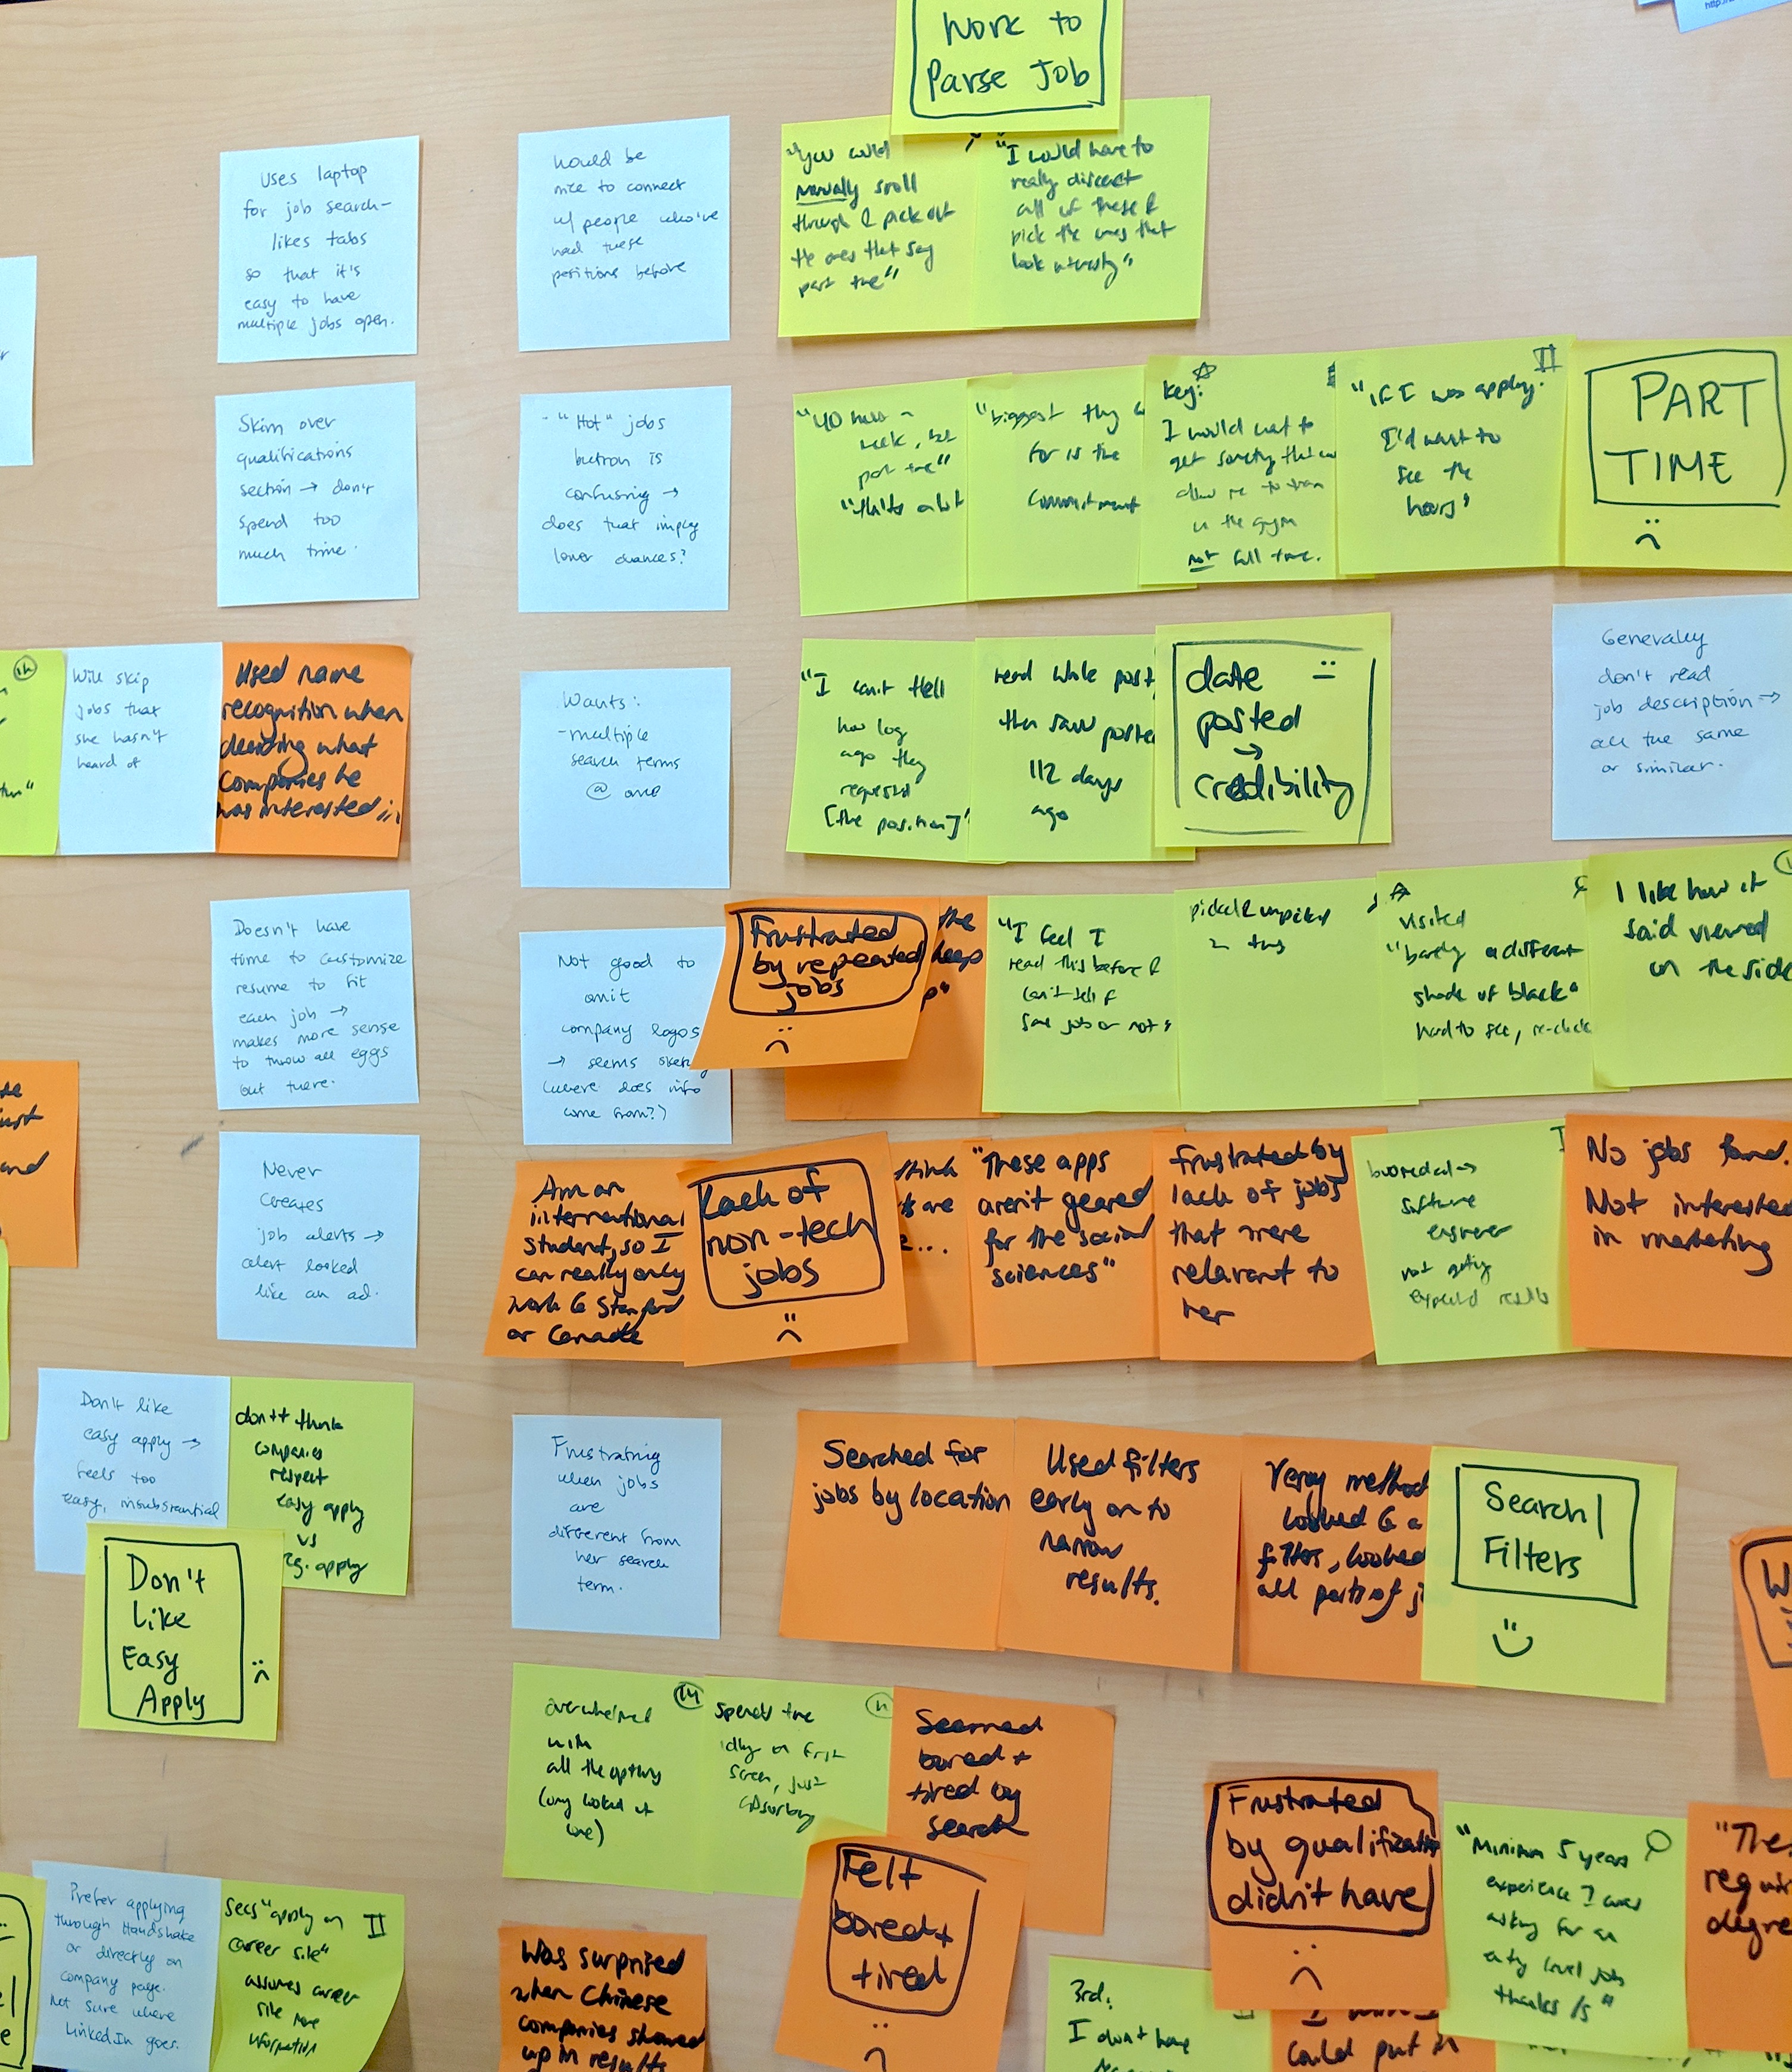 http:/
Work to
Parse Job
Uses laptop
for job search-
likes tabs
so that it's
easy to have
multiple jobs open.
Would be
nice to connect
w/ people who've
had these
positions before
"you could
manually scroll
through & pick out
the ones that say
part time"
"I would have to
really dissect
all of these &
pick the ones that
look interesting"
Skim over
qualifications
section → don't
spend too
much time.
- "Hot" jobs
button is
confusing →
does that imply
lower chances?
"40 hours a
week, but
part time"
"that's a lot
"biggest thing
for is the
commitment
Key:
I would want to
get something that
allow me to train
in the gym
not full time.
II
"If I was applying.
I'd want to
see the
hours"
PART
TIME
Will skip
jobs that
she hasn't
heard of
Used name
recognition when
deciding what
companies he
was interested in
Wants:
-multiple
search terms
@ once
"I can't tell
how long
ago they
requested
[the position]"
read whole post,
then saw posted
112 days
ago
date
posted
→
credibility
Generally
don't read
job description →
all the same
or similar.
Doesn't have
time to customize
resume to fit
each job →
makes more sense
to throw all eggs
out there.
Not good to
omit
company logos
→ seems sketchy
(where does info
come from?)
Frustrated
by repeated
jobs
the
keeps
"I feel I
read this before &
can't tell if
same job or not"
picked unpicked
visited
"barely a different
shade of black"
hard to see, re-click
I like how it
said viewed
on the side
Never
creates
job alerts →
alert looked
like an ad.
Am an
international
student, so I
can really only
work @ Stanford
or Canada
Lack of
non-tech
jobs
think
are
"These apps
aren't geared
for the social
sciences"
frustrated by
lack of jobs
that were
relevant to
her
software
engineer
not getting
expected results
No jobs found.
Not interested
in marketing
Don't like
easy apply →
feels too
easy, insubstantial
don't think
companies
respect
easy apply
vs
reg. apply
Don't
Like
Easy
Apply
Frustrating
when jobs
are
different from
her search
term.
Searched for
jobs by location
Used filters
early on to
narrow
results.
Very method
looked @ a
filter, looked
all parts of j
Search/
Filters
overwhelmed
with
all the options
(only looked at
one)
14
spends time
idly on first
screen, just
absorbing
Seemed
bored +
tired by
search
Felt
bored +
tired
Frustrated
by qualifications
didn't have
"Minimum 5 years
experience I was
asking for an
entry level job
thanks /s"
"The
requir
degree
Prefer applying
through Handshake
or directly on
company page.
Not sure where
LinkedIn goes.
Sees "apply on
career site"
assumes career
site more
information
II
Was surprised
when Chinese
companies showed
up in results
3rd:
I don't have
could put in